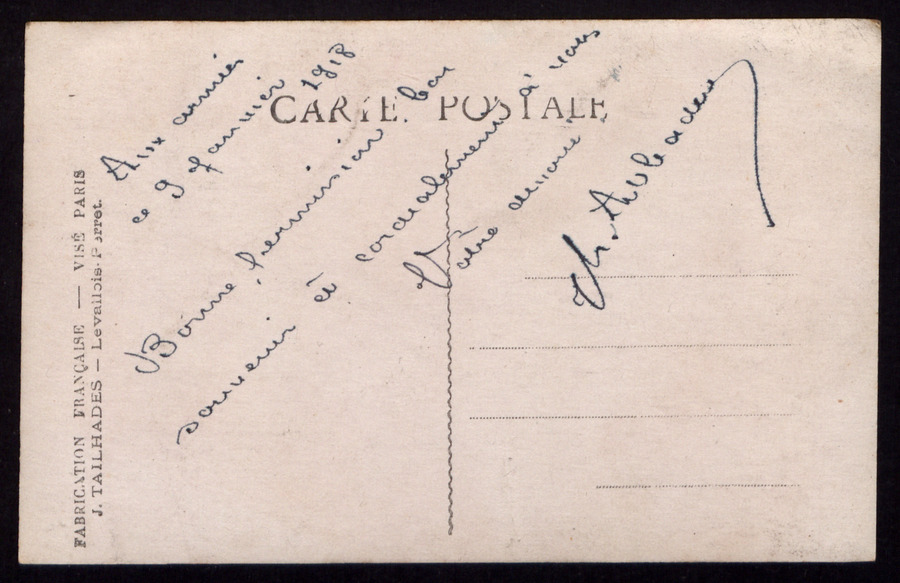 CARTE POSTALE
Aux armées
ce 9 Janvier 1918
Bonne permission bon
souvenir et cordialement à vous
Votre
Ch.
FABRICATION FRANÇAISE — VISÉ PARIS
J. TAILHADES — Levallois-Perret.